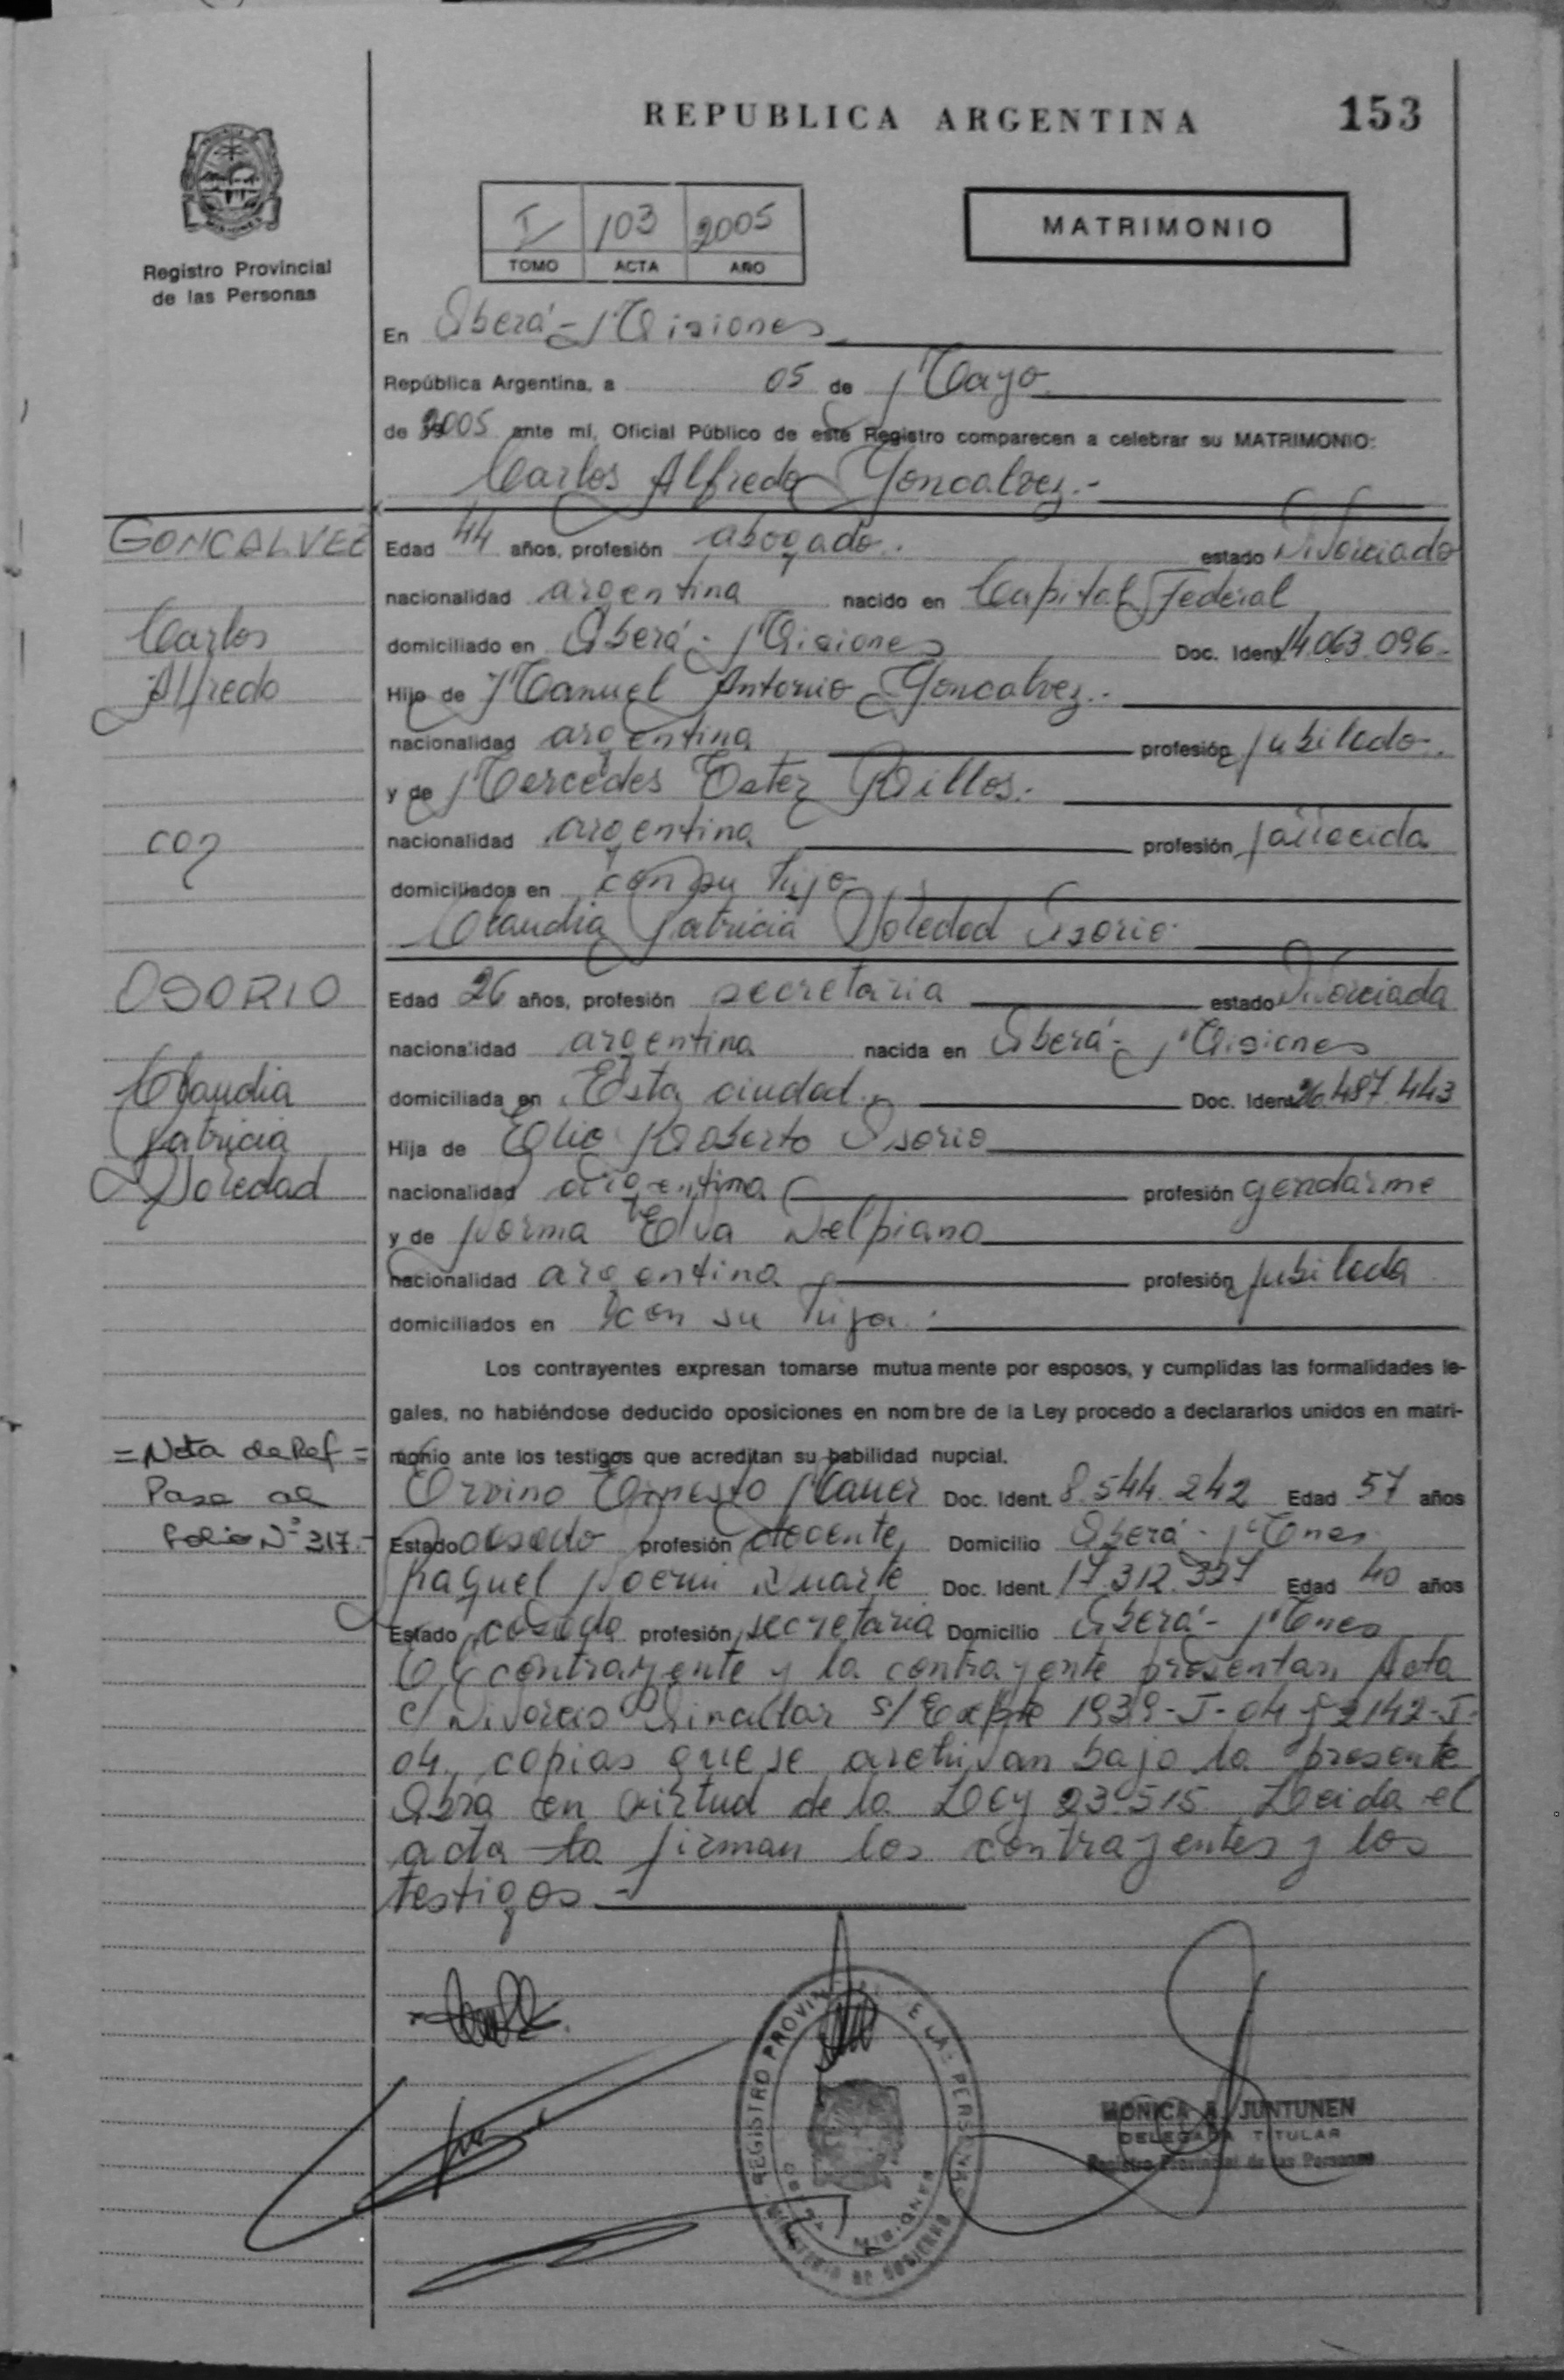 REPUBLICA ARGENTINA
153
Registro Provincial
de las Personas
I 103 2005
TOMO ACTA AÑO
MATRIMONIO
En Oberá - Misiones
República Argentina, a 05 de Mayo
de 2005 ante mí, Oficial Público de este Registro comparecen a celebrar su MATRIMONIO:
Carlos Alfredo Goncalvez.-
GONCALVEZ
Carlos
Alfredo
con
Edad 44 años, profesión abogado. estado Divorciado
nacionalidad argentina nacido en Capital Federal
domiciliado en Oberá - Misiones Doc. Ident. 14.063.096.-
Hijo de Manuel Antonio Goncalvez.-
nacionalidad argentina profesión jubilado.-
y de Mercedes Ester Rillos.-
nacionalidad argentina profesión fallecida
domiciliados en con su hijo
Claudia Patricia Soledad Osorio
OSORIO
Claudia
Patricia
Soledad
Edad 26 años, profesión secretaria estado Divorciada
nacionalidad argentina nacida en Oberá - Misiones
domiciliada en Esta ciudad.- Doc. Ident. 26.487.443
Hija de Elio Roberto Osorio
nacionalidad argentina profesión gendarme
y de Norma Elva Delpiano
nacionalidad argentina profesión jubilada
domiciliados en con su hija.
Los contrayentes expresan tomarse mutuamente por esposos, y cumplidas las formalidades le-
gales, no habiéndose deducido oposiciones en nombre de la Ley procedo a declararlos unidos en matri-
monio ante los testigos que acreditan su habilidad nupcial.
= Nota de Ref =
Pasa al
Folio Nº 317.-
Orvino Ernesto Maner Doc. Ident. 8.544.242 Edad 57 años
Estado casado profesión docente Domicilio Oberá - Mnes
Raquel Noemi Duarte Doc. Ident. 17.312.337 Edad 40 años
Estado casada profesión secretaria Domicilio Oberá - Mnes
El contrayente y la contrayente presentan Acta
c/ Divorcio Vincular s/ Expte 1939-I-04 y 2142-I-
04, copias que se archivan bajo la presente
Obra en virtud de la Ley 23.515. Leida el
acta la firman los contrayentes y los
testigos.-
REGISTRO PROVINCIAL DE LAS PERSONAS
MINISTERIO DE GOBIERNO
OBERA MISIONES
MONICA A. JUNTUNEN
DELEGADA TITULAR
Registro Provincial de las Personas